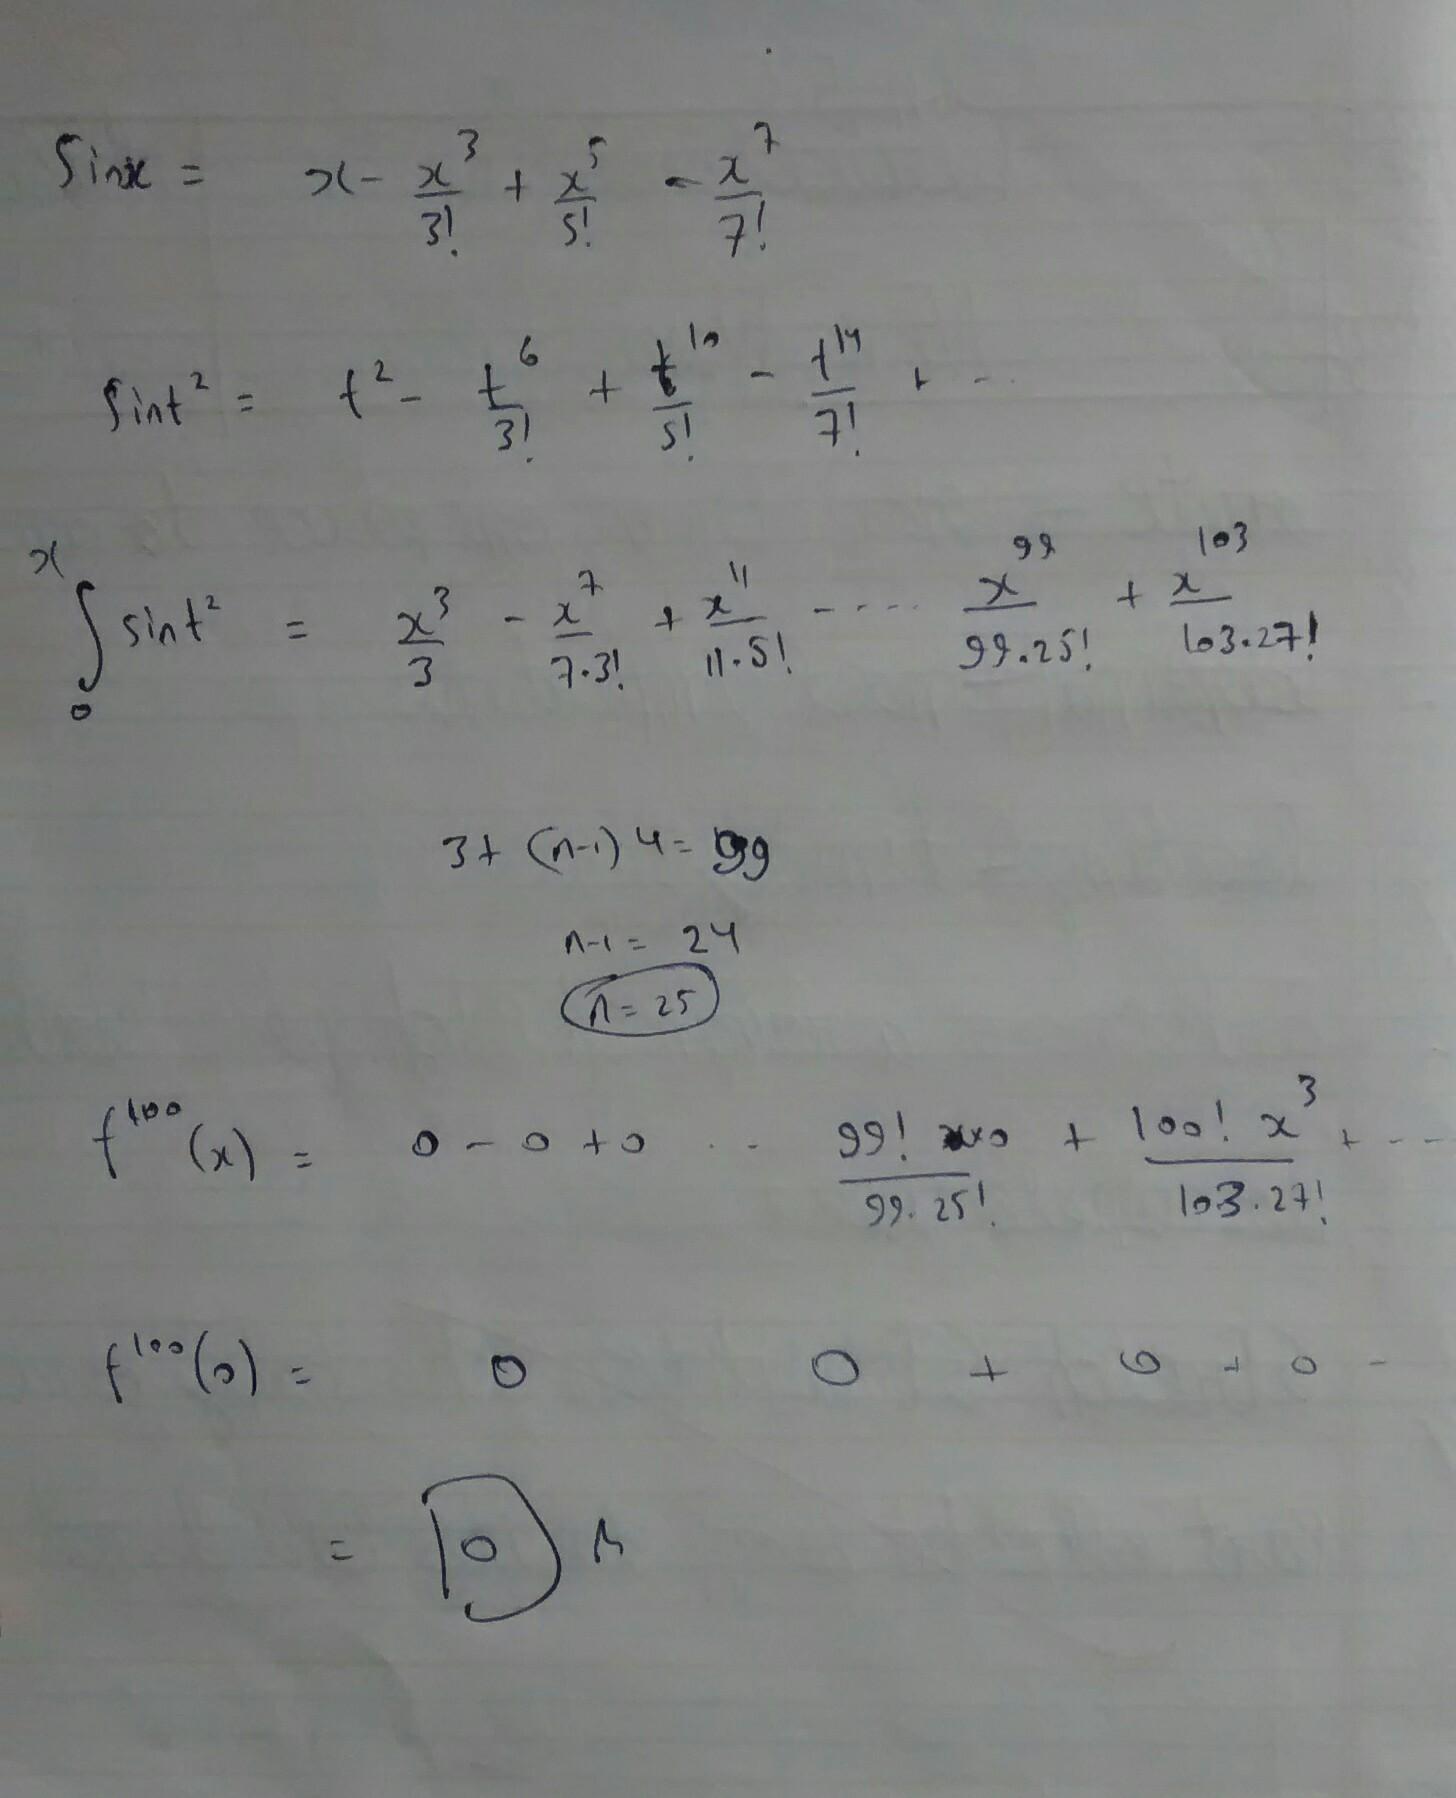 Sinx = x - x³/3! + x⁵/5! - x⁷/7!
Sint² = t² - t⁶/3! + t¹⁰/5! - t¹⁴/7! + - ..
∫₀ˣ sint² = x³/3 - x⁷/7.3! + x¹¹/11.5! - .... x⁹⁹/99.25! + x¹⁰³/103.27!
3+ (n-1) 4 = 99
n-1 = 24
n = 25
f¹⁰⁰(x) = 0 - 0 + 0 ... 99! x0/99.25! + 100! x³/103.27! + ---
f¹⁰⁰(0) = 0 0 + 0 + 0 -
= 0